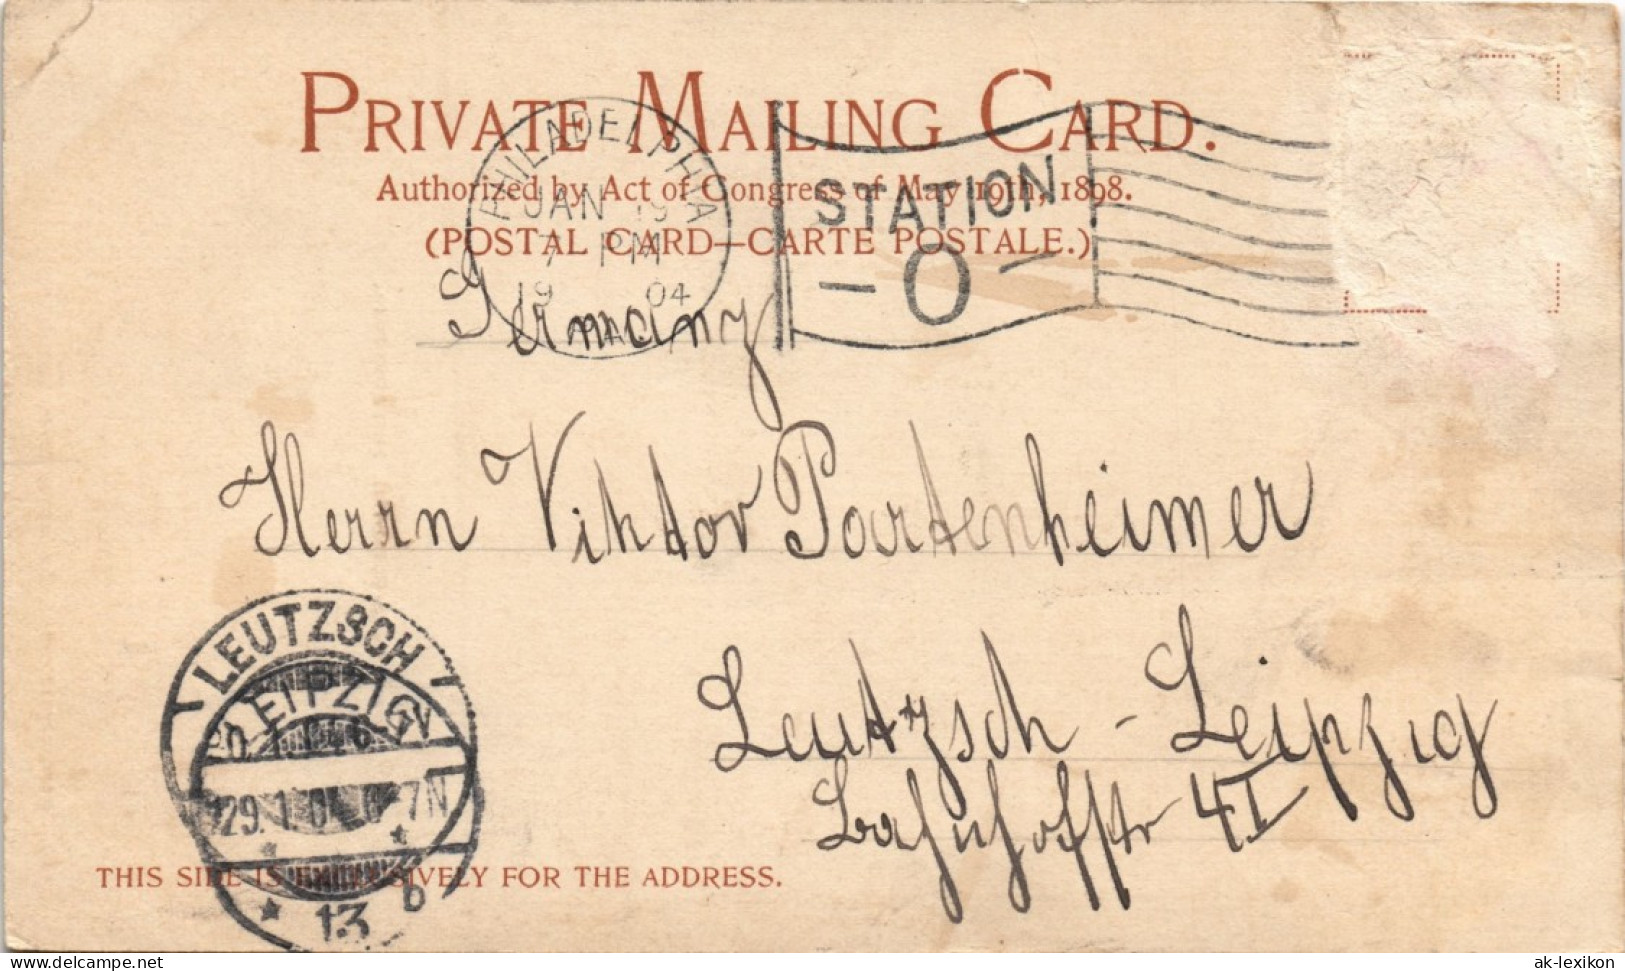 PRIVATE MAILING CARD.
Authorized by Act of Congress of May 19th, 1898.
(POSTAL CARD—CARTE POSTALE.)
PHILADELPHIA
JAN 19
7 PM
19 04
PA.
STATION
- O -
Germany
Herrn Viktor Partenheimer
Leutzsch - Leipzig
Bahnhofstr 4 I
LEUTZSCH
LEIPZIG
29.1.0
7N
13
b
THIS SIDE IS EXCLUSIVELY FOR THE ADDRESS.
www.delcampe.net
ak-lexikon